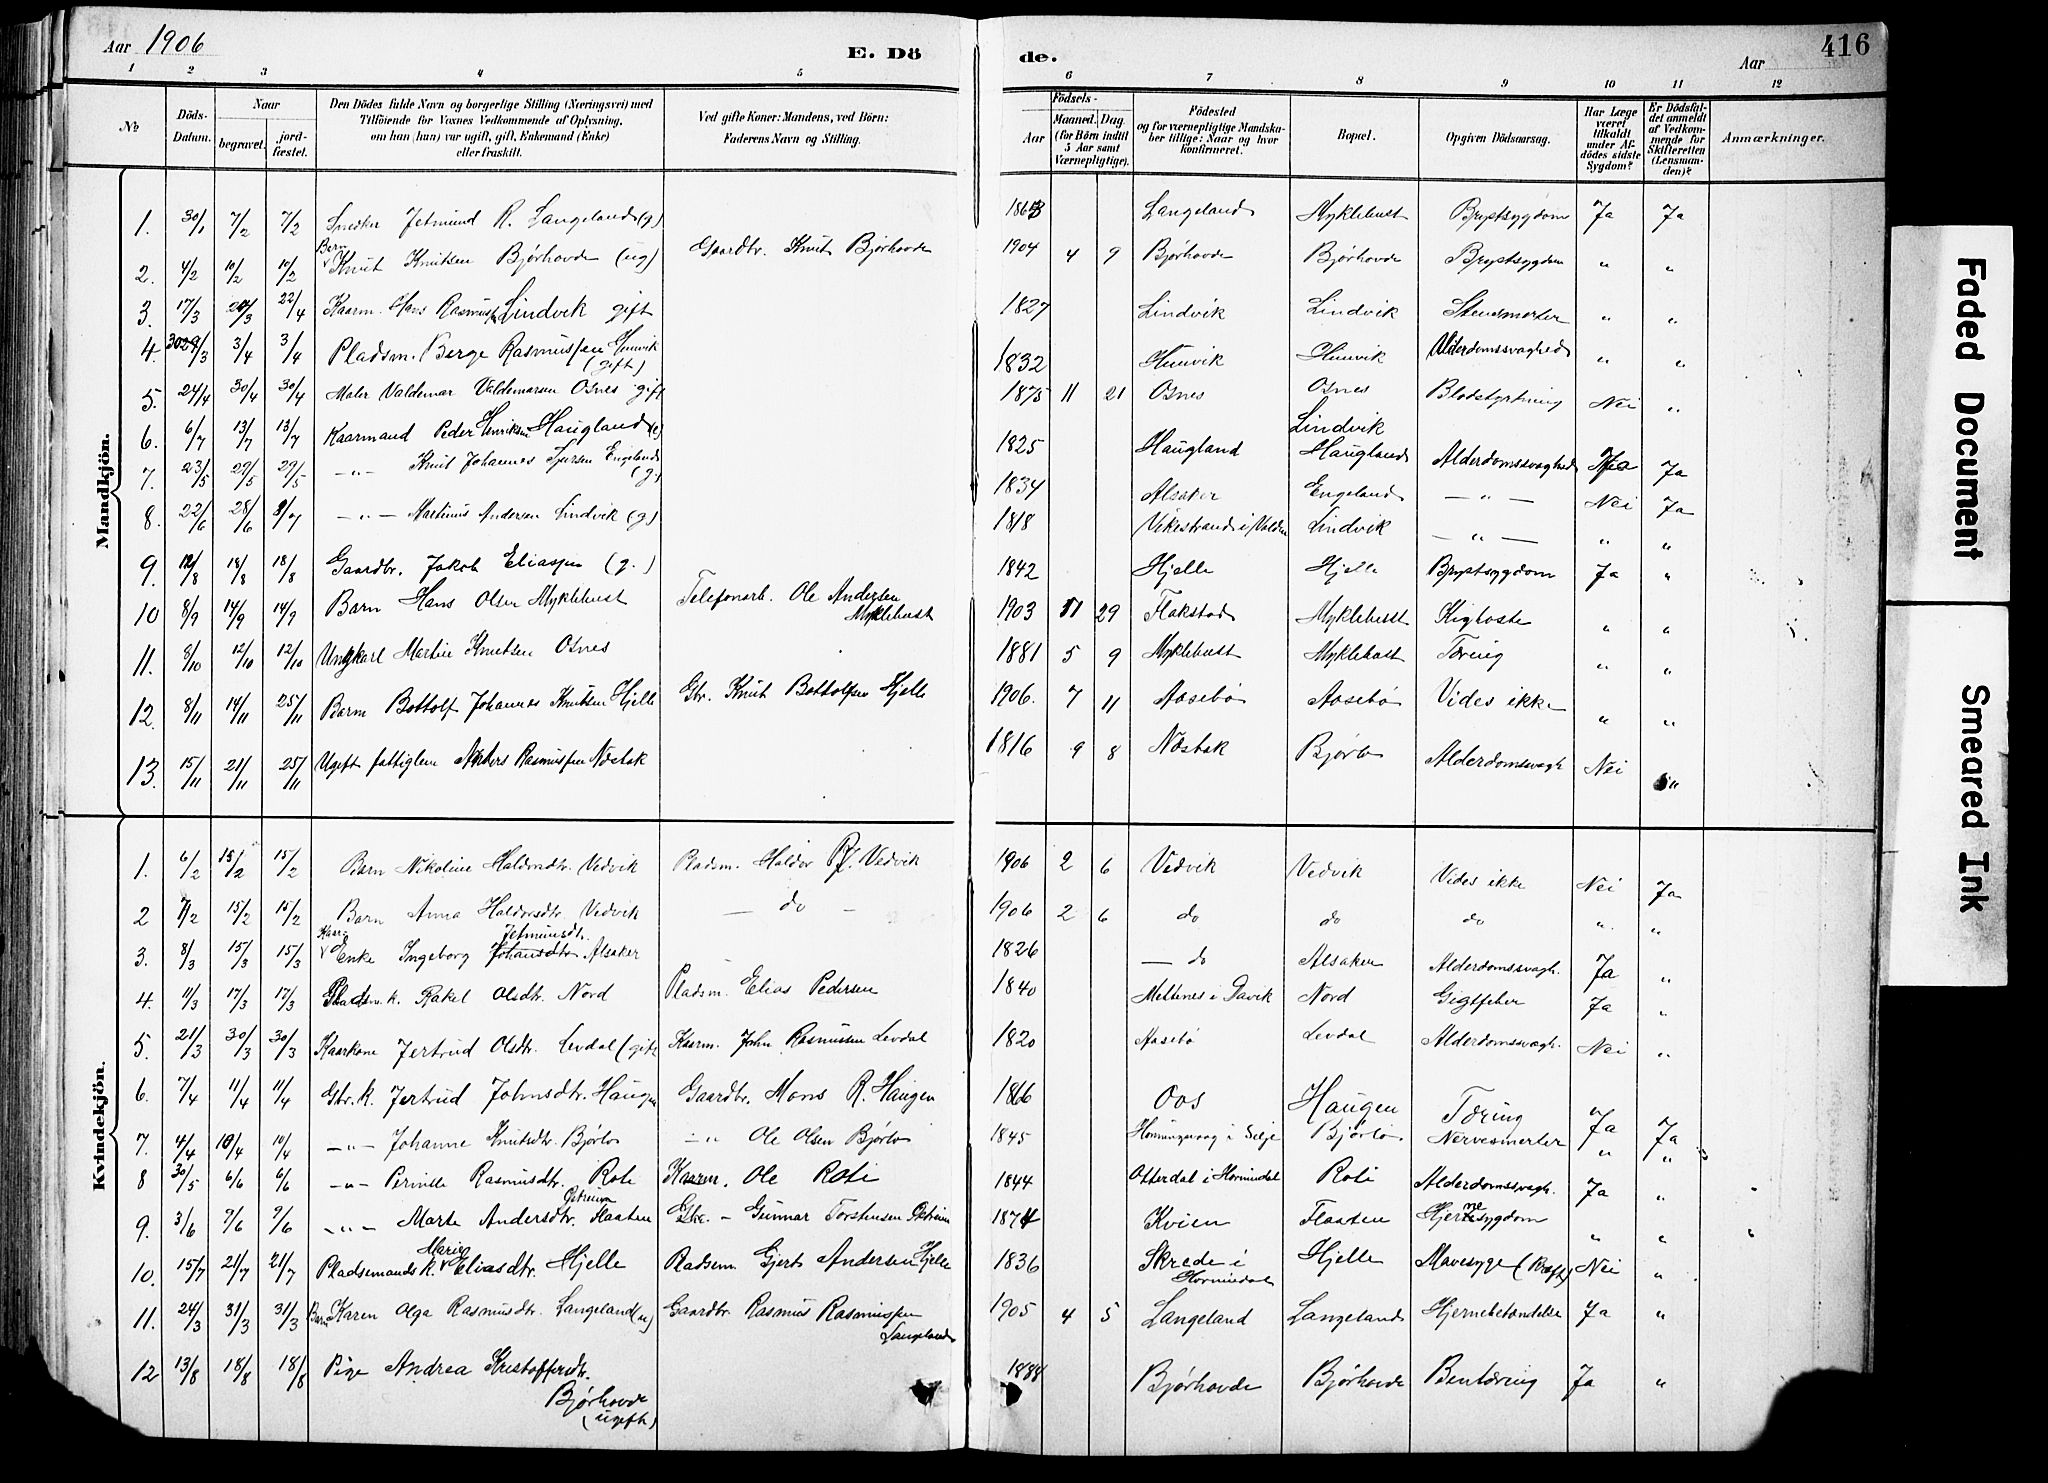 Aar 1906
E. Dö
de.
Aar
416
1 2 3 4 5 6 7 8 9 10 11 12
No
Döds-Datum.
Naar
begravet.
jord-fæstet.
Den Dödes fulde Navn og borgerlige Stilling (Næringsvei) med
Tilföiende for Voxnes Vedkommende af Oplysning,
om han (hun) var ugift, gift, Enkemand (Enke)
eller fraskilt.
Ved gifte Koner: Mandens, ved Börn:
Faderens Navn og Stilling.
Födsels-
Aar
Maaned. Dag
(for Börn indtil
5 Aar samt
Værnepligtige).
Födested
og for værnepligtige Mandska-
ber tillige: Naar og hvor
konfirmeret.
Bopæl.
Opgiven Dödsaarsag.
Har Læge
været
tilkaldt
under Af-
dödes sidste
Sygdom?
Er Dödsfal-
det anmeldt
af Vedkom-
mende for
Skifteretten
(Lensman-
den)?
Anmærkninger.
Mandkjön.
1. 30/1 7/2 7/2 Snedker Jetmund R. Langeland (g) 1863 Langeland Myklebust Brystsygdom Ja Ja
2. 4/2 10/2 10/2 Barn Knut Knutsen Bjørhovde (ug) Gaardbr. Knut Bjørhovde 1904 4 9 Bjørhovde Bjørhovde Brystsygdom " "
3. 17/3 /3 22/4 Kaarm. Hans Rasmussen Lindvik gift 1827 Lindvik Lindvik Stensmerter " "
4. /3 3/4 3/4 Pladsm. Berge Rasmussen Hunvik (gift) 1832 Hunvik Hunvik Alderdomssvaghed " "
5. 24/4 30/4 30/4 Maler Valdemar Valdemarsen Osnes gift 1875 11 21 Osnes Osnes Blodstyrtning Nei "
6. 6/7 13/7 13/7 Kaarmand Peder Henriksen Haugland (e) 1825 Haugland Lindvik Haugland Alderdomssvaghed Ja Ja
7. 23/5 29/5 29/5 -"- Knut Johannes Sjursen Engeland (g.) 1834 Alsaker Engeland -"- Nei Ja
8. 22/6 28/6 /7 -"- Martinus Andersen Lindvik (g) 1818 Vikestrand i Volden Lindvik -"- " "
9. 12/8 18/8 18/8 Gaardbr. Jakob Eliassen (g.) 1842 Hjelle Hjelle Brystsygdom Ja "
10 8/9 14/9 14/9 Barn Hans Olsen Myklebust Telefonarb. Ole Andersen Myklebust 1903 11 29 Flakstad Myklebust Kighoste " "
11. 8/10 12/10 12/10 Ungkarl Martin Knutsen Osnes 1881 5 9 Myklebust Myklebust Tæring " "
12. 8/11 14/11 25/11 Barn Bottolf Johannes Knutsen Hjelle Gbr. Knut Bottolfsen Hjelle 1906. 7 11 Aasebø Aasebø Vides ikke " "
13. 15/11 21/11 25/11 Ugift fattiglem Anders Rasmussen Nostok 1816 9 8 Nostok Bjørlo Alderdomssvagh. Nei "
Kvindekjön.
1. 6/2 15/2 15/2 Barn Nikoline Haldorsdtr. Vedvik Pladsm. Haldor Vedvik 1906 2 6 Vedvik Vedvik Vides ikke Nei Ja
2 7/2 15/2 15/2 Barn Anna Haldorsdtr. Vedvik — do — 1906 2 6 do do do " "
3. 8/3 15/3 15/3 Kaar- Enke Ingeborg Johansdtr. Jetmundsdtr. Alsaker 1826 — do Alsaker Alderdomssvagh. Ja "
4. 11/3 17/3 17/3 Pladsm.k. Rakel Olsdtr. Nord Pladsm. Elias Pedersen 1840 Meltenes i Davik Nord Gigtfeber Ja "
5. 21/3 30/3 30/3 Kaarkone Jertrud Olsdtr. Levdal (gift Kaarm. John Rasmussen Levdal 1820 Aasebø Levdal Alderdomssvagh. Nei "
6. 7/4 11/4 11/4 Gbr.k. Jertrud Johnsdtr. Haugen Gaardbr. Mons R. Haugen 1866 Oos Haugen Tæring Ja Ja
7. 4/4 10/4 10/4 -"- Johanne Knutsdtr. Bjørlo -"- Ole Olsen Bjørlo 1845 Honningsvaag i Selje Bjørlo Nervesmerter " "
8 30/5 6/6 6/6 -"- Pernille Rasmusdtr. Rote Kaarm. Ole Roti 1844 Otterdal i Hornindal Roti Alderdomssvagh. Ja "
9. 3/6 9/6 9/6 -"- Marte Andersdtr. Flaaten Gbr. - Gunnar Torstensen 1874 Kvien Flaaten Hjernesygdom " "
10. 15/7 21/7 21/7 Pladsemands k. Marie Eliasdtr. Hjelle Pladsem. Gjert Andersen Hjelle 1836 Skrede i Hornindal Hjelle Mavesyge (Kræft) Nei "
11. 24/3 31/3 31/3 Barn Karen Olga Rasmusdtr. Langeland (u) Gaardbr. Rasmus Rasmussen Langeland 1905 4 5 Langeland Langeland Hjernebetændelse Ja "
12 13/8 18/8 18/8 Pige Andrea Kristoffersdtr. Bjørhovde (ugift) 1884 Bjørhovde Bjørhovde Bentæring Ja "
Faded Document
Smeared Ink